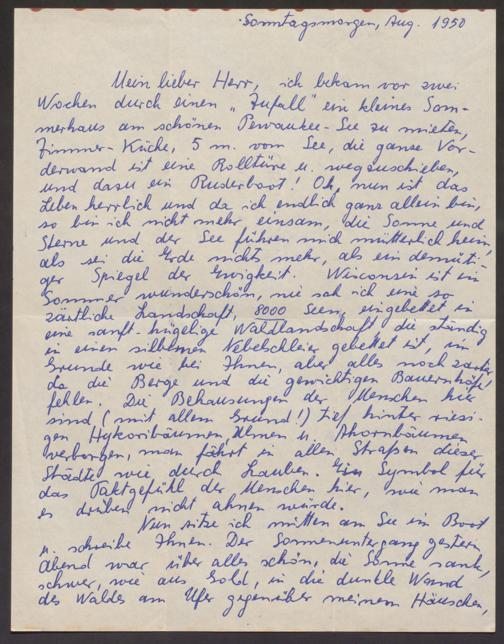 Sonntagsmorgen, Aug. 1950
Mein lieber Herr, ich bekam vor zwei
Wochen durch einen „Zufall" ein kleines Som-
merhaus am schönen Pewaukee-See zu mieten,
Zimmer-Küche, 5 m. vom See, die ganze Vor-
derwand ist eine Rolltüre u. wegzuschieben,
und dazu ein Ruderboot! Oh, nun ist das
Leben herrlich und da ich endlich ganz allein bin,
so bin ich nicht mehr einsam, die Sonne und
Sterne und der See führen mich mütterlich heim,
als sei die Erde nichts mehr, als ein demüti-
ger Spiegel der Ewigkeit. Wisconsin ist im
Sommer wunderschön, nie sah ich eine so
zärtliche Landschaft, 8000 Seen, eingebettet in
eine sanft-hügelige Waldlandschaft die ständig
in einen silbernen Nebelschleier gebettet ist, im
Grunde wie bei Ihnen, aber alles noch zarter
da die Berge und die gewichtigen Bauernhöfe
fehlen. Die Behausungen der Menschen hier
sind (mit allem Grund!) tief hinter riesi-
gen Hykoribäumen, Ulmen u. Ahornbäumen
verborgen, man fährt in allen Straßen dieser
Städte wie durch Lauben. Ein Symbol für
das Taktgefühl der Menschen hier, wie man
es drüben nicht ahnen würde.
Nun sitze ich mitten am See im Boot
u. schreibe Ihnen. Der Sonnenuntergang gestern
Abend war über alles schön, die Sonne sank,
schwer, wie aus Gold, in die dunkle Wand
des Waldes am Ufer gegenüber meinem Häuschen,